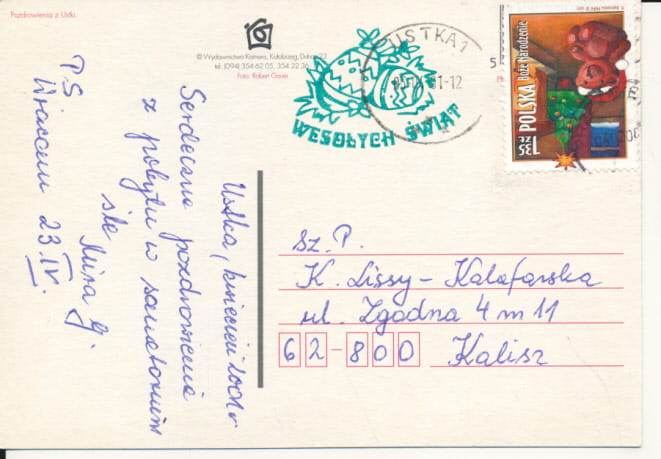 Pozdrowienia z Ustki.
© Wydawnictwo Kamera, Kołobrzeg,
tel. (094) 354 62 05, 354 22 36
Foto: Robert Gauer
USTKA 1
WESOŁYCH ŚWIĄT
POLSKA Boże Narodzenie
Ustka, kwiecień 2001r
Serdeczne pozdrowienia
z pobytu w sanatorium
śle
P.S
Wracam 23.IV.
Sz. P.
K. Lissy-Kalafarska
ul. Zgodna 4 m 11
62-800 Kalisz